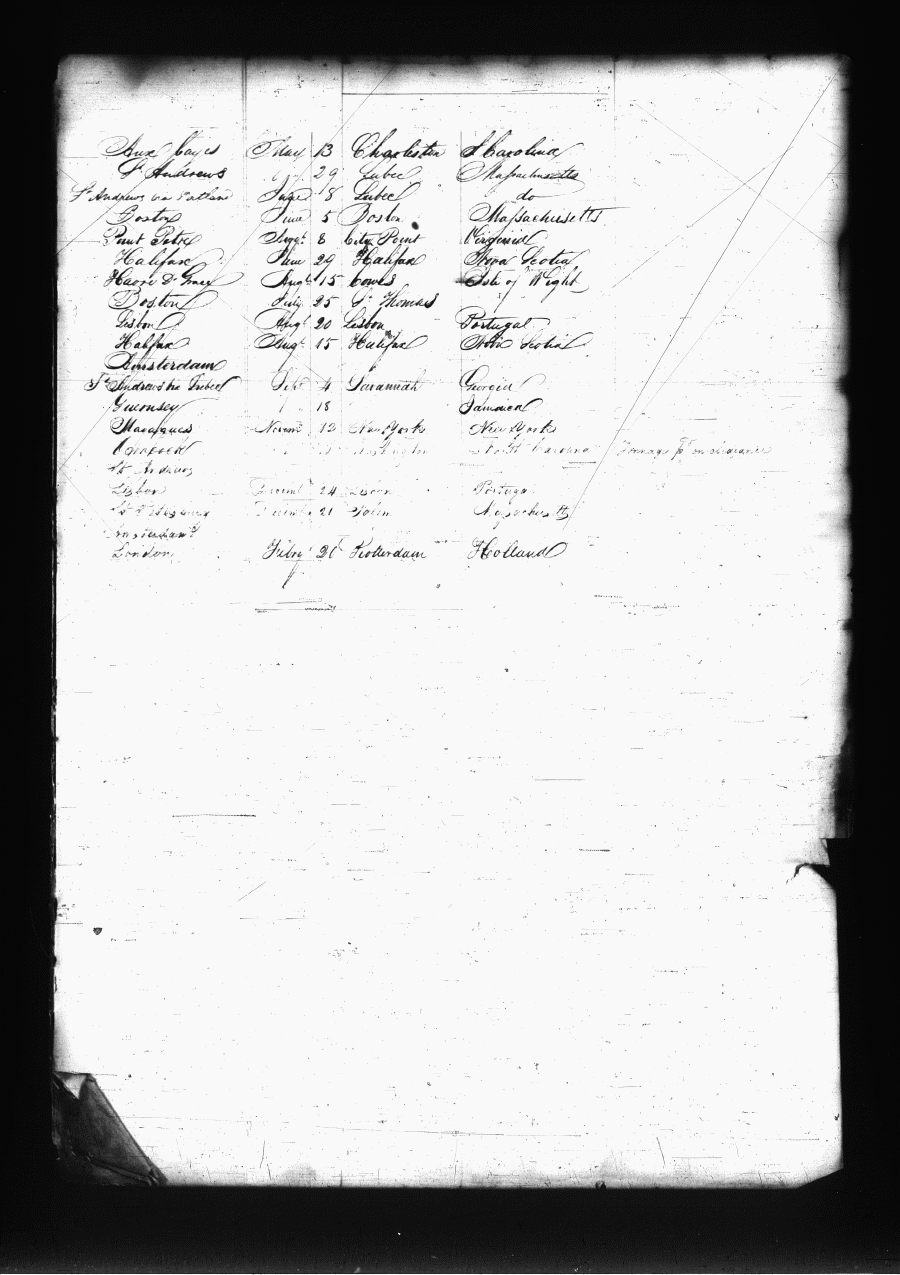 Aux Cayes May 13 Charleston S Carolina
St Andrews 29 Lubec Massachusetts
St Andrews via Portland 8 Lubec do
Boston June 5 Boston Massachusetts
Point Petre Augt 8 City Point Virginia
Halifax June 29 Halifax Nova Scotia
Havre De Grace Augt 15 Cowes Isle of Wight
Boston July 25 St Thomas
Lisbon Augt 20 Lisbon Portugal
Halifax Augt 15 Halifax Nova Scotia
Amsterdam
St Andrews via Lubec 4 Savannah Georgia
Guernsey 18 Jamaica
12 New York New York
Washington North Carolina Tonnage
St Andrews
Lisbon Decemr 24 Lisbon Portugal
St Petersburg Decemr 21 Salem Massachusetts
Amsterdam
London Febry Rotterdam Holland